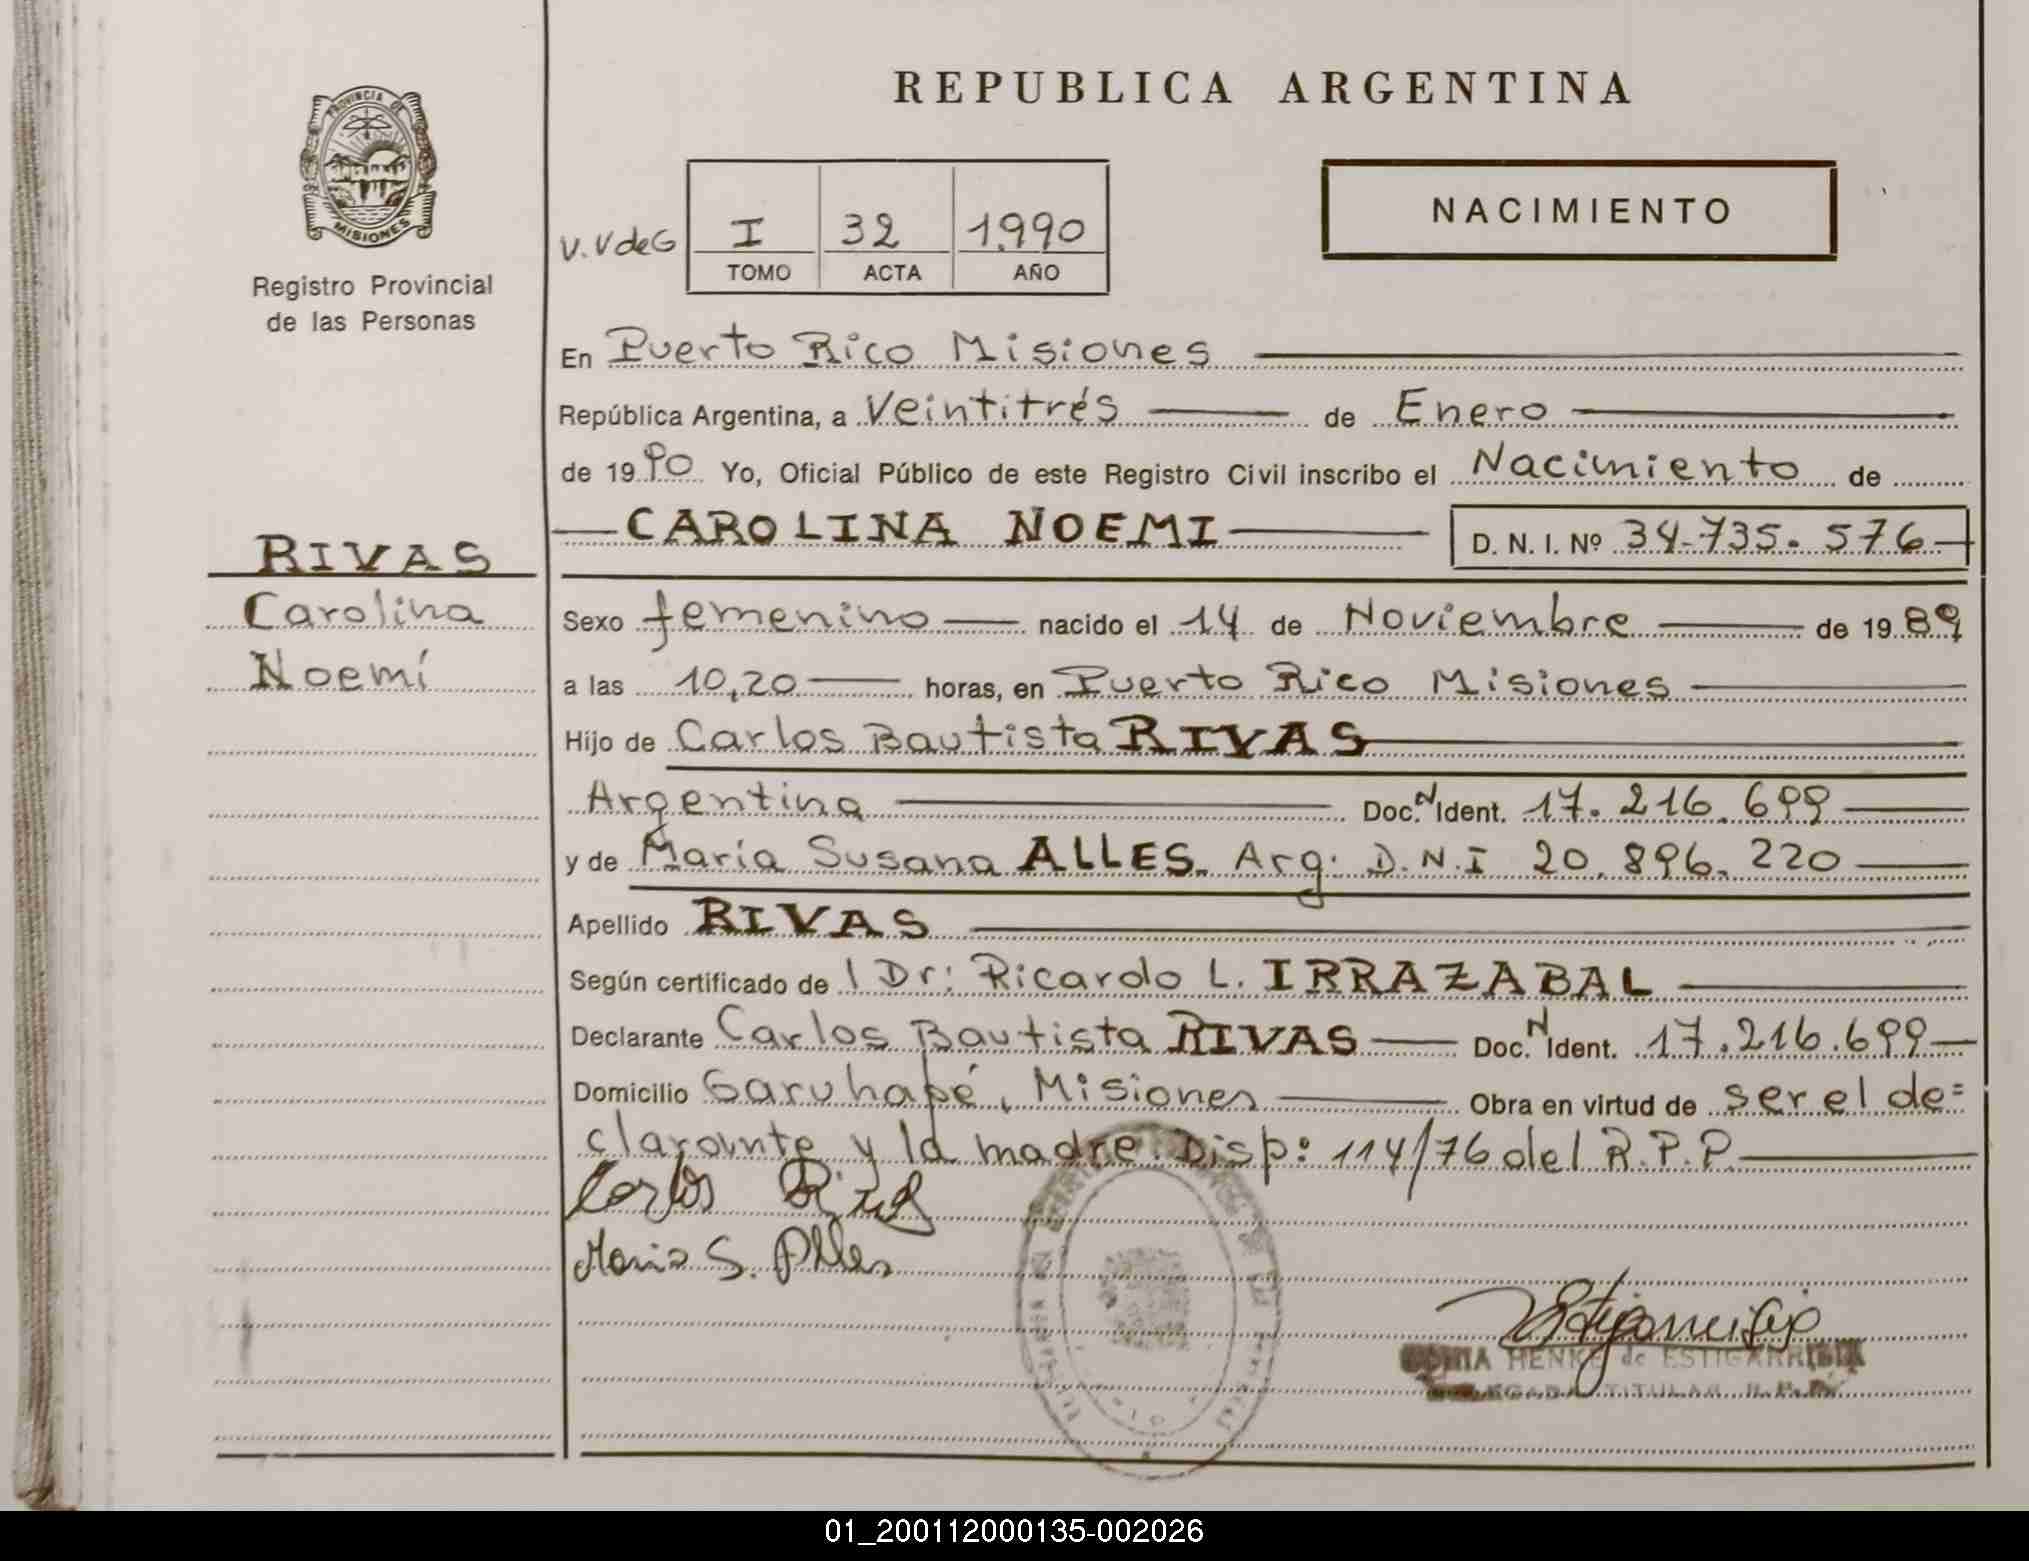 REPUBLICA ARGENTINA
PROVINCIA DE
MISIONES
Registro Provincial
de las Personas
NACIMIENTO
V.V de G
I 32 1.990
TOMO ACTA AÑO
En Puerto Rico Misiones
República Argentina, a Veintitrés de Enero
de 19 90 Yo, Oficial Público de este Registro Civil inscribo el Nacimiento de
CAROLINA NOEMI D. N. I. Nº 34.735.576
RIVAS
Carolina
Noemí
Sexo femenino nacido el 14 de Noviembre de 19 89
a las 10,20 horas, en Puerto Rico Misiones
Hijo de Carlos Bautista RIVAS
Argentina Doc. N Ident. 17.216.699
y de María Susana ALLES. Arg. D.N.I 20.896.220
Apellido RIVAS
Según certificado de l Dr: Ricardo L. IRRAZABAL
Declarante Carlos Bautista RIVAS Doc. N Ident. 17.216.699
Domicilio Garuhapé, Misiones Obra en virtud de ser el de=
clarante y la madre. Disp: 114/76 del R.P.P.
Carlos Rivas
Maria S. Alles
HENKE de ESTIGARRIBIA
TITULAR R.P.P.
01_200112000135-002026